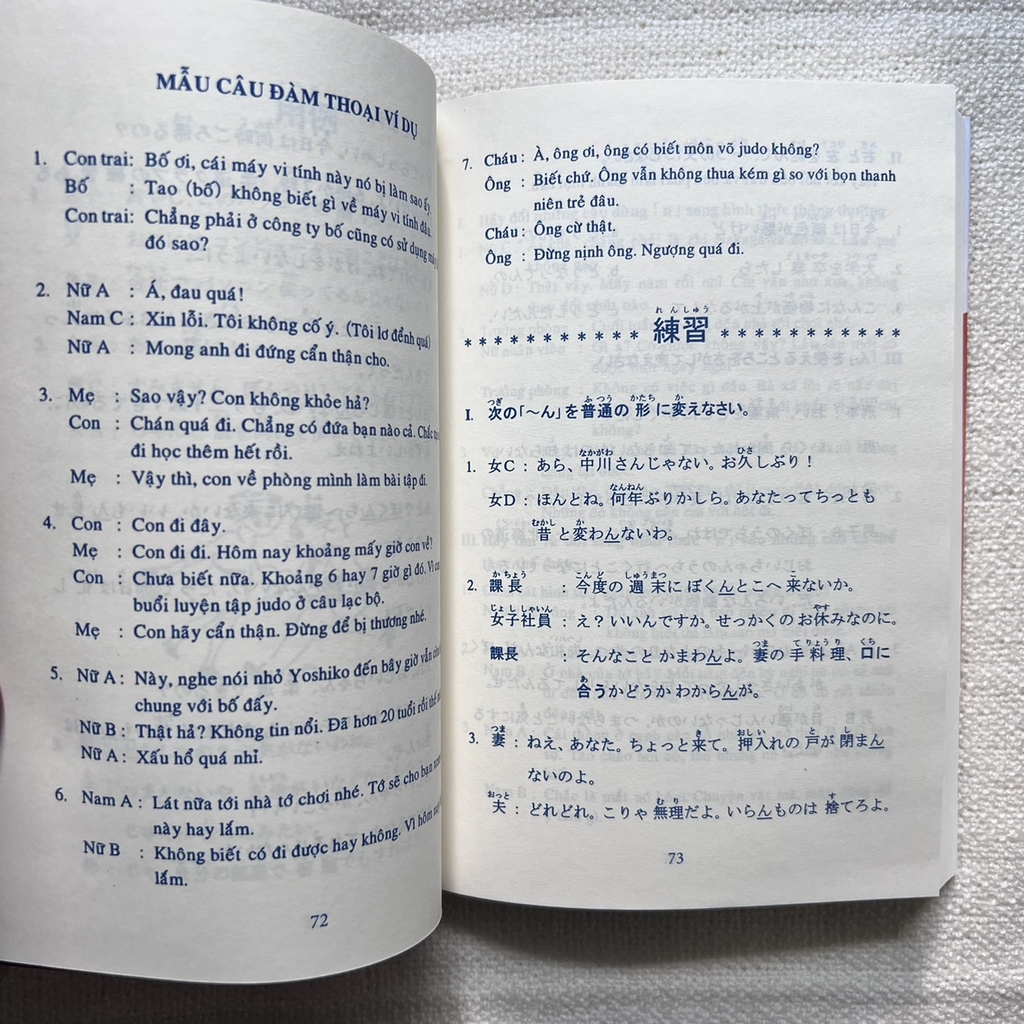 MẪU CÂU ĐÀM THOẠI VÍ DỤ
1. Con trai: Bố ơi, cái máy vi tính này nó bị làm sao ấy.
Bố : Tao (bố) không biết gì về máy vi tính đâu.
Con trai: Chẳng phải ở công ty bố cũng có sử dụng
đó sao?
2. Nữ A : Á, đau quá!
Nam C : Xin lỗi. Tôi không cố ý. (Tôi lơ đểnh quá)
Nữ A : Mong anh đi đứng cẩn thận cho.
3. Mẹ : Sao vậy? Con không khỏe hả?
Con : Chán quá đi. Chẳng có đứa bạn nào cả. Chắc
đi học thêm hết rồi.
Mẹ : Vậy thì, con về phòng mình làm bài tập đi.
4. Con : Con đi đây.
Mẹ : Con đi đi. Hôm nay khoảng mấy giờ con về?
Con : Chưa biết nữa. Khoảng 6 hay 7 giờ gì đó. Vì
buổi luyện tập judo ở câu lạc bộ.
Mẹ : Con hãy cẩn thận. Đừng để bị thương nhé.
5. Nữ A : Này, nghe nói nhỏ Yoshiko đến bây giờ vẫn
chung với bố đấy.
Nữ B : Thật hả? Không tin nổi. Đã hơn 20 tuổi rồi
Nữ A : Xấu hổ quá nhỉ.
6. Nam A : Lát nữa tới nhà tớ chơi nhé. Tớ sẽ cho bạn
này hay lắm.
Nữ B : Không biết có đi được hay không. Vì hôm
lắm.
72
7. Cháu : À, ông ơi, ông có biết môn võ judo không?
Ông : Biết chứ. Ông vẫn không thua kém gì so với bọn thanh
niên trẻ đâu.
Cháu : Ông cừ thật.
Ông : Đừng nịnh ông. Ngượng quá đi.
れんしゅう
* * * * * * * * * * * 練習 * * * * * * * * * * *
つぎ ふつう かたち か
I. 次の「〜ん」を普通の形に変えなさい。
なかがわ ひさ
1. 女C : あら、中川さんじゃない。お久しぶり!
なんねん
女D : ほんとね。何年ぶりかしら。あなたってちっとも
むかし か
昔と変わんないわ。
かちょう こんど しゅうまつ こ
2. 課長 : 今度の週末にぼくんとこへ来ないか。
じょししゃいん やす
女子社員 : え?いいんですか。せっかくのお休みなのに。
つま てりょうり くち
課長 : そんなこと かまわんよ。妻の手料理、口に
あ
合うかどうか わからんが。
つま き おしい と し
3. 妻 : ねえ、あなた。ちょっと来て。押入れの戸が閉まん
ないのよ。
おっと むり す
夫 : どれどれ。こりゃ無理だよ。いらんものは捨てろよ。
73